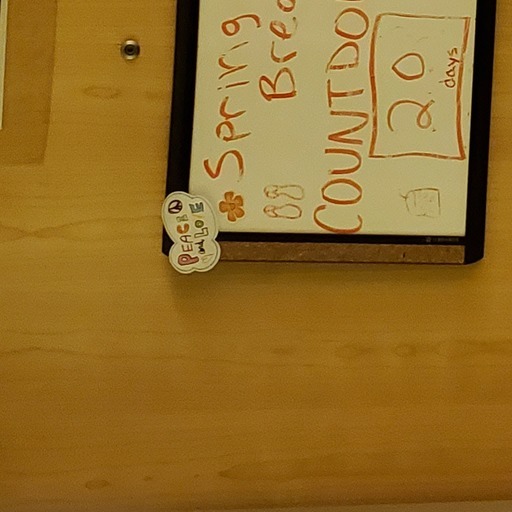 PEACE
and LOVE
Spring
Brea
COUNTDO
20
days